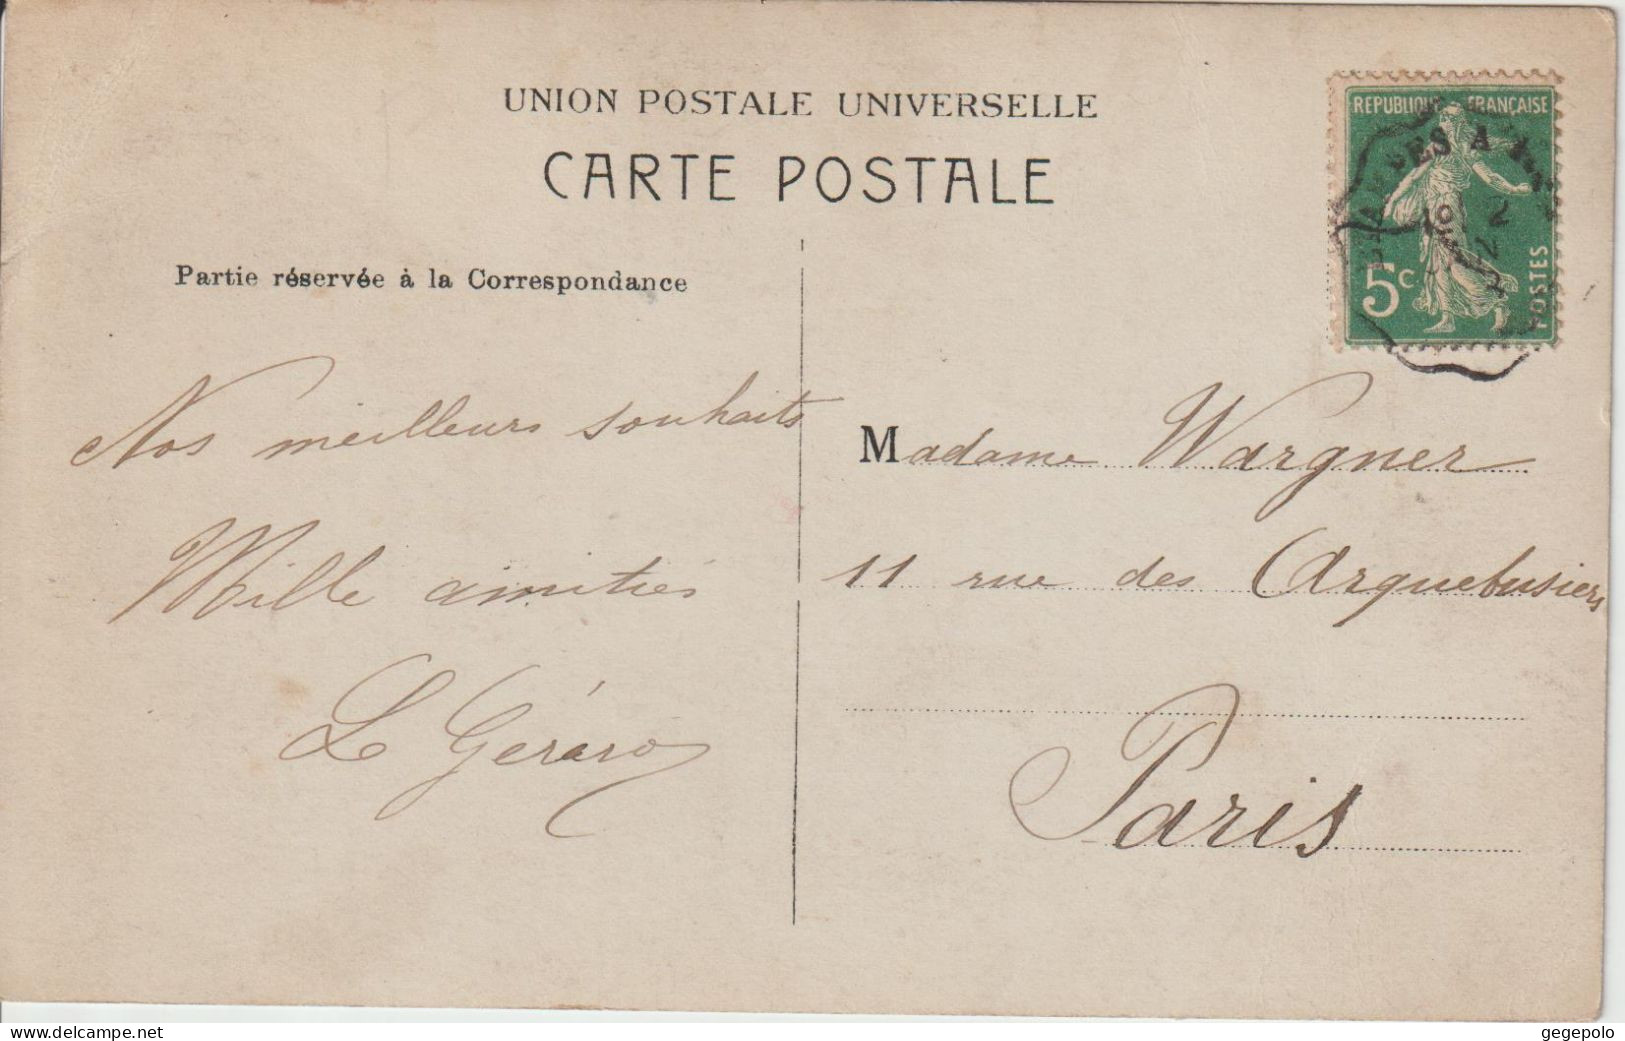 UNION POSTALE UNIVERSELLE
CARTE POSTALE
Partie réservée à la Correspondance
RÉPUBLIQUE FRANÇAISE
5c
POSTES
Nos meilleurs souhaits
Mille amitiés
L Gérard
Madame Wargner
11 rue des Arquebusiers
Paris
www.delcampe.net
gegepolo